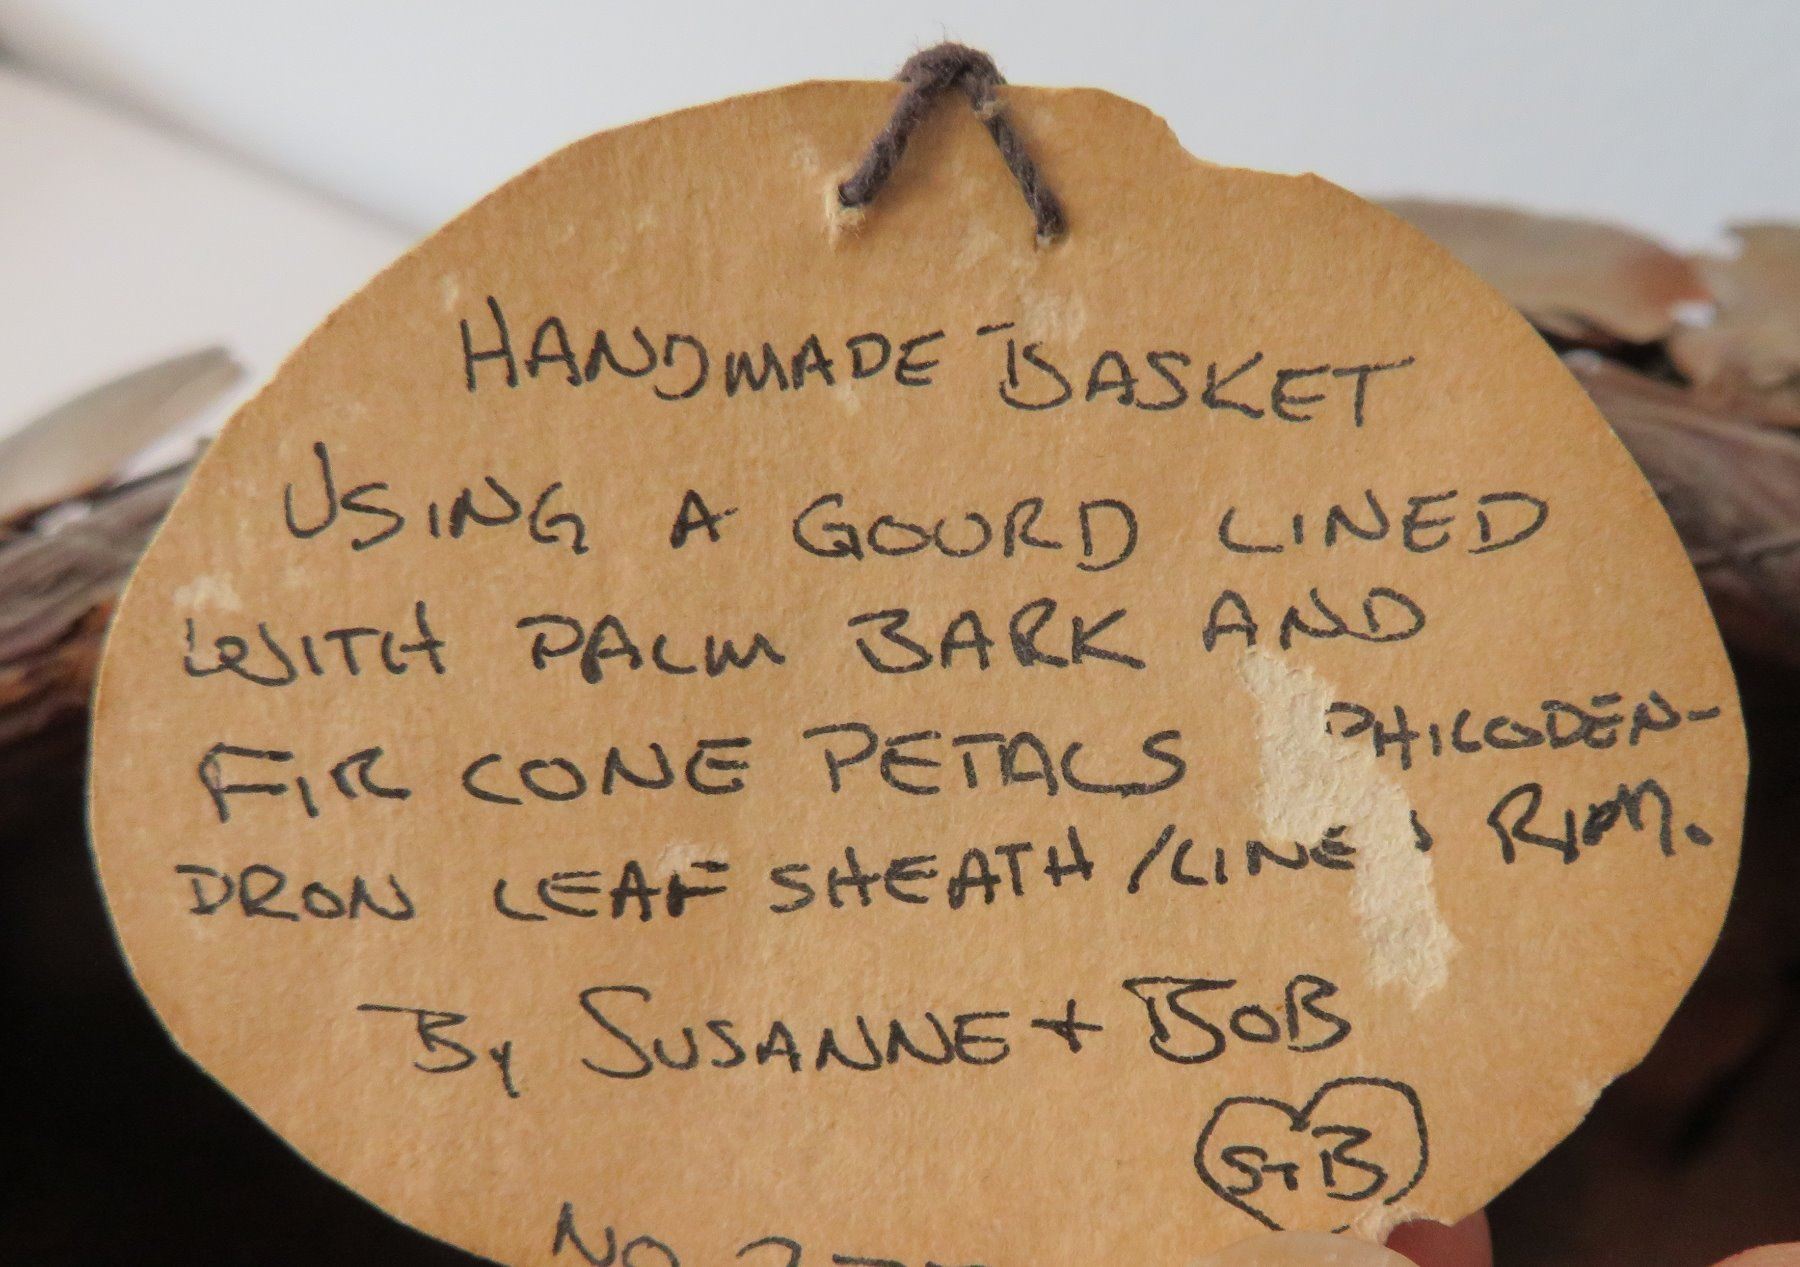 HANDMADE BASKET
USING A GOURD LINED
WITH PALM BARK AND
FIR CONE PETALS PHILODEN-
DRON LEAF SHEATH /LINE RIM.
By SUSANNE + BOB
S+B
NO